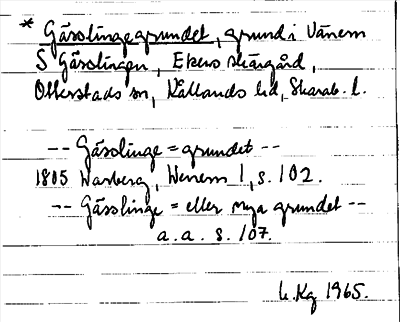 * Gässlingegrundet, grund i Vänern
S Gässlingen, Ekens skärgård,
Otterstads sn, Kållands hd, Skarab. l.
-- Gässlinge = grundet --
1805 Warberg, Wenern 1, s. 102.
-- Gässlinge = eller nya grundet --
a. a. s. 107.
1965.